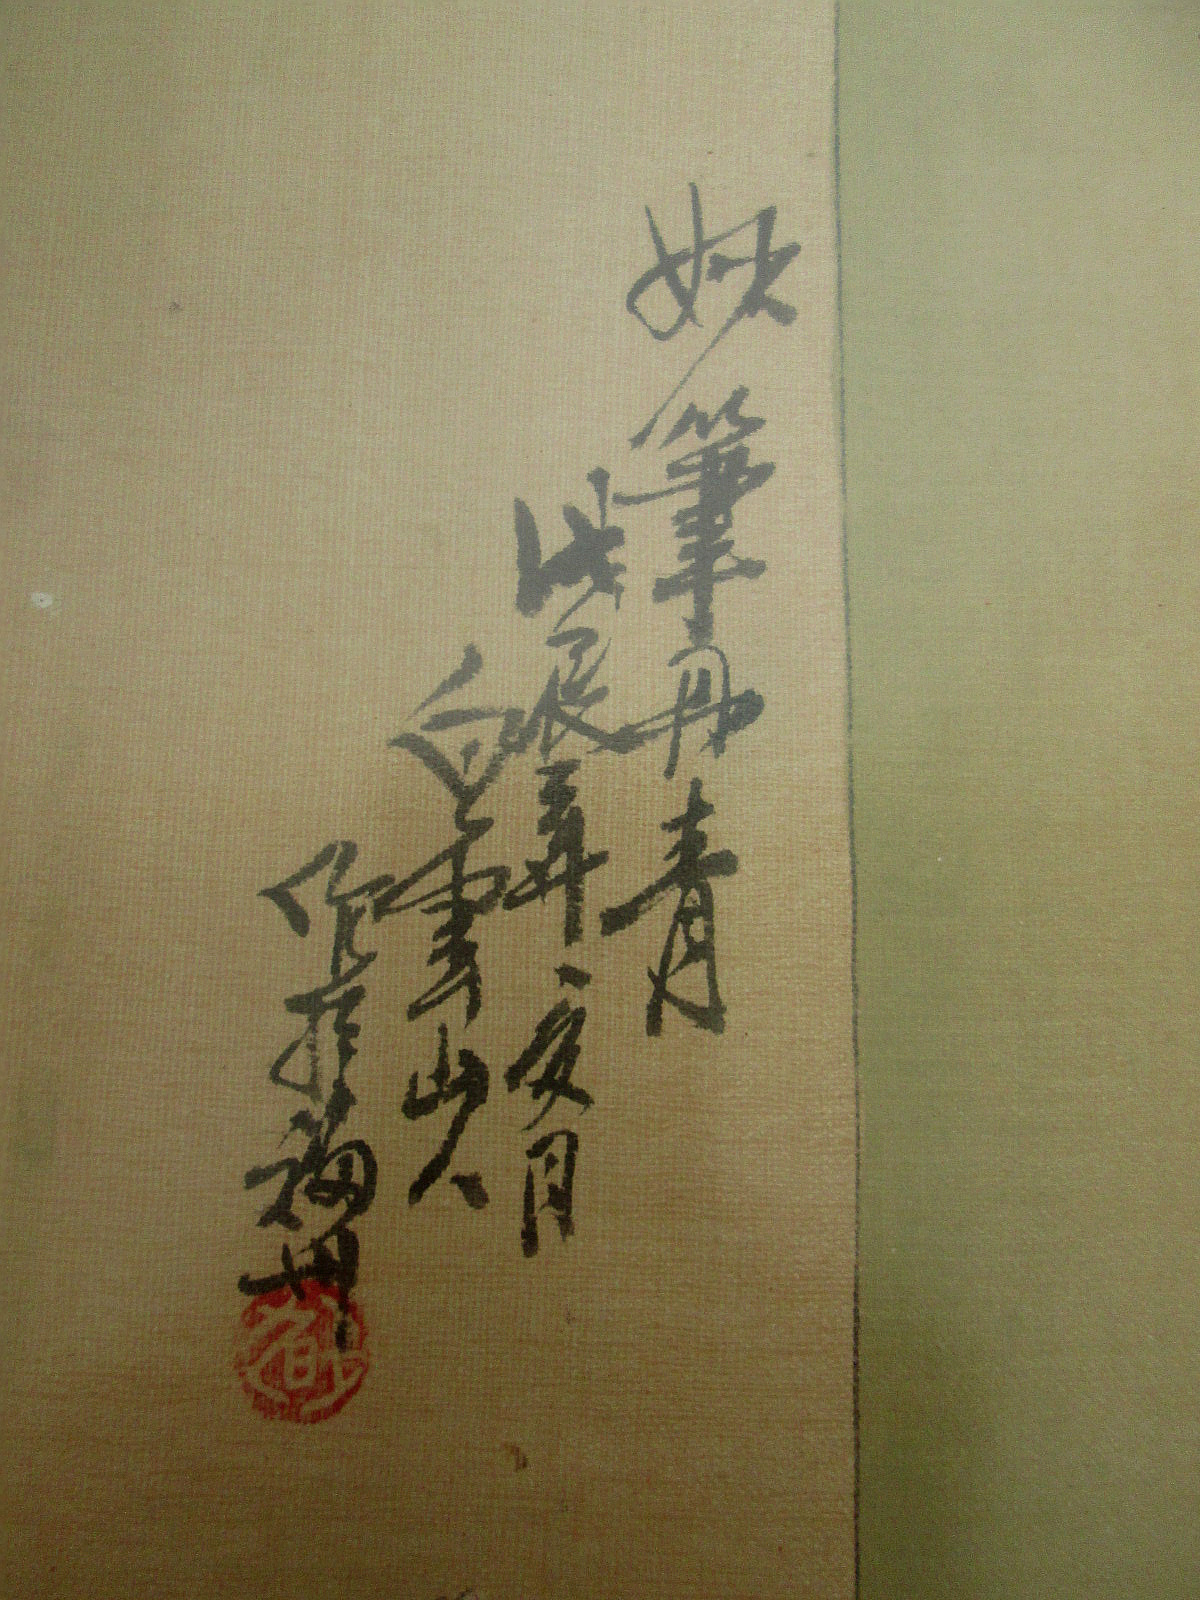 妙筆丹青
戊辰年夏月
白雲山人
作於福州